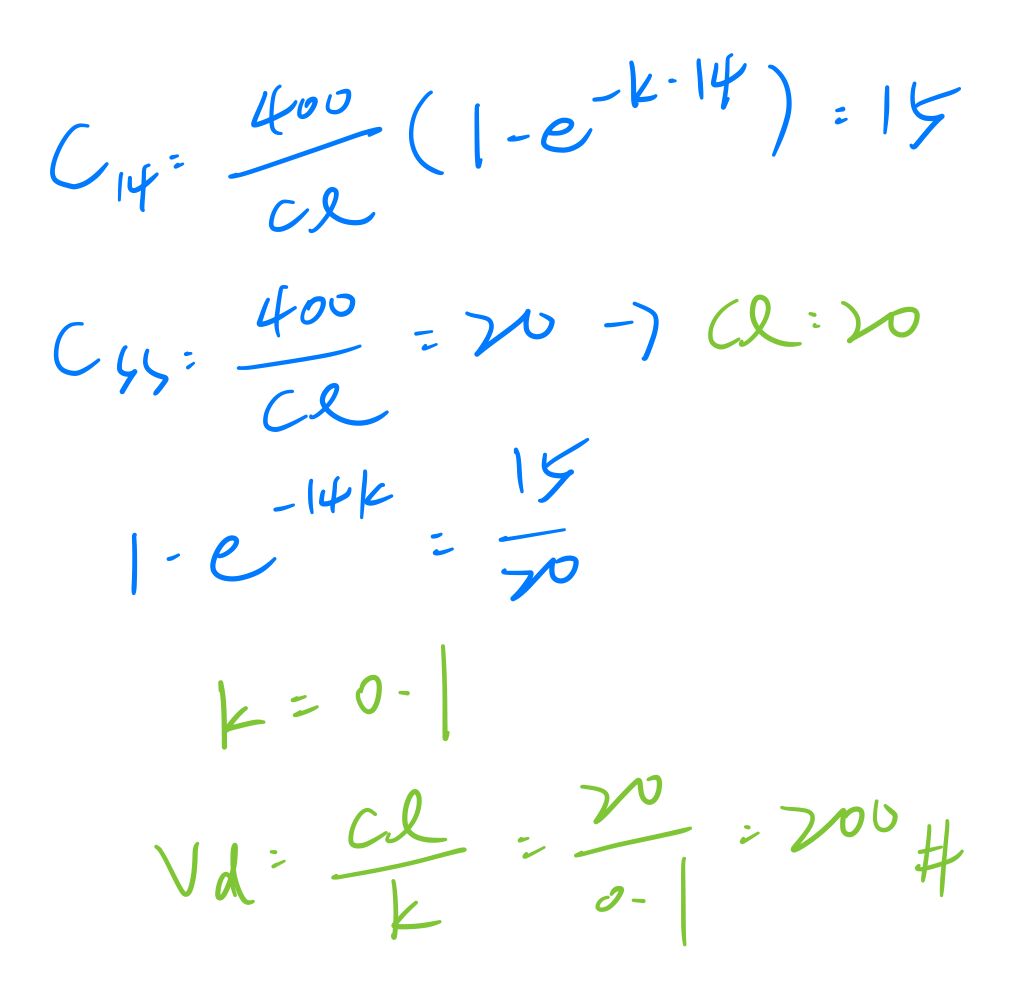 C₁₄ = 400/Cl (1 - e^(-k·14)) = 15
Css = 400/Cl = 20 → Cl = 20
1 - e^(-14k) = 15/20
k = 0.1
Vd = Cl/k = 20/0.1 = 200 #